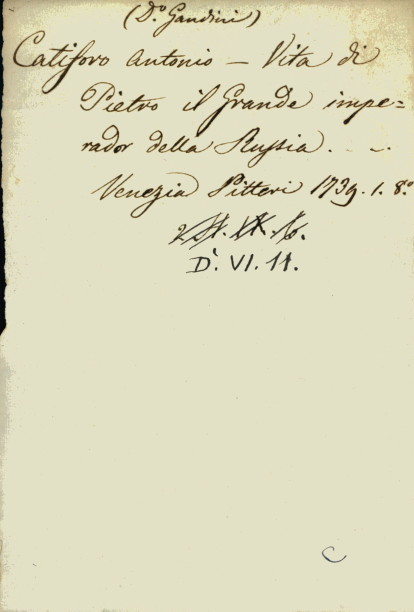 (D.º Gandini)
Catiforo Antonio – Vita di
Pietro il Grande impe=
rador della Russia. . . .
Venezia Pitteri 1739. 1. 8.º
D. VI. 11.
C